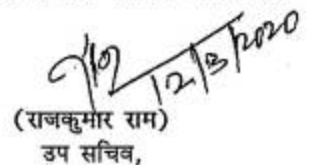 12/3/2020
(राजकुमार राम)
उप सचिव,